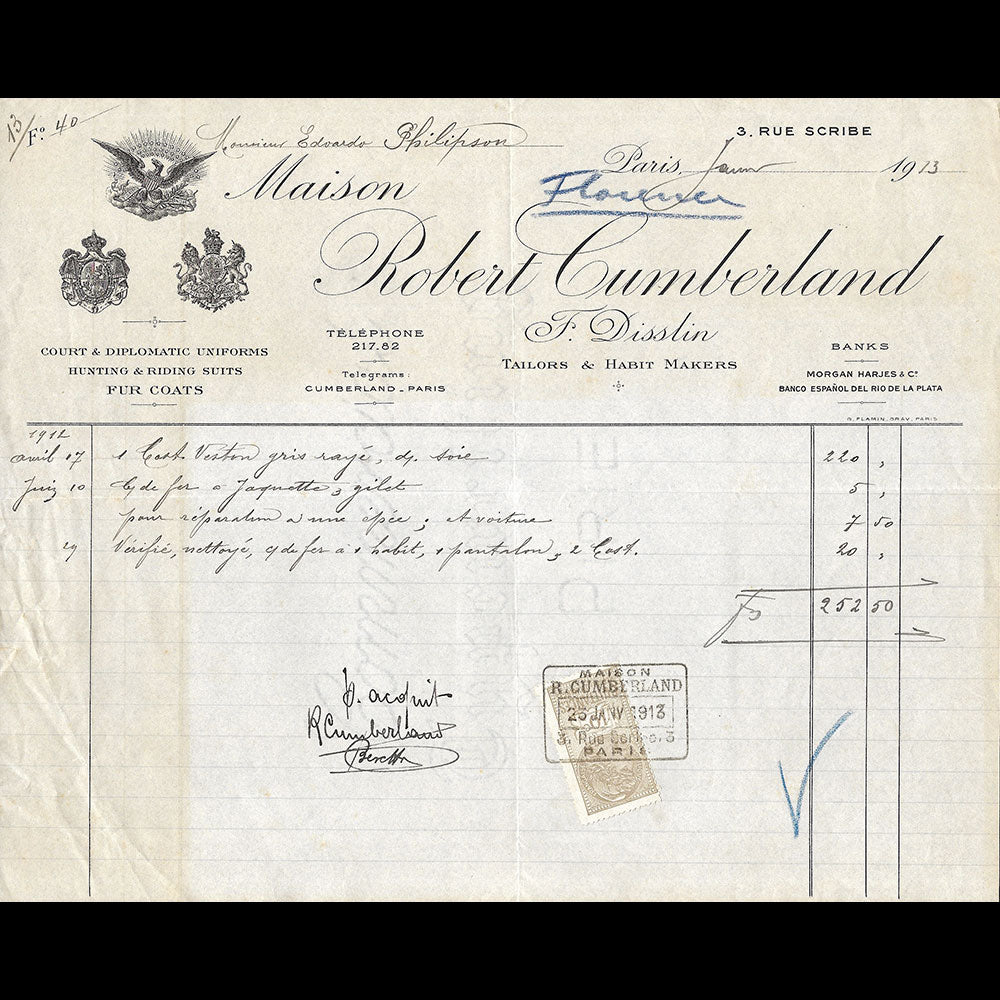 13/Fº 40
Monsieur Edoardo Philipson
3. RUE SCRIBE
Paris, Janv 1913
Florence
Maison
Robert Cumberland
F. Disslin
TAILORS & HABIT MAKERS
COURT & DIPLOMATIC UNIFORMS
HUNTING & RIDING SUITS
FUR COATS
TÉLÉPHONE
217.82
Telegrams:
CUMBERLAND_PARIS
BANKS
MORGAN HARJES & Cº
BANCO ESPAÑOL DEL RIO DE LA PLATA
G. FLAMIN, GRAV. PARIS.
1912
avril 17 1 Cost. Veston gris rayé, dt. soie 220 "
Juin 10 Cp de fer à Jaquette & gilet 5 "
pour réparation à une épée, et voiture 7 50
29 Vérifié, nettoyé, cp de fer à 1 habit, 1 pantalon, 2 Cost. 20 "
Fs 252 50
P. acquit
RCumberland
MAISON
R. CUMBERLAND
25 JANV 1913
3, Rue Scribe, 3
PARIS